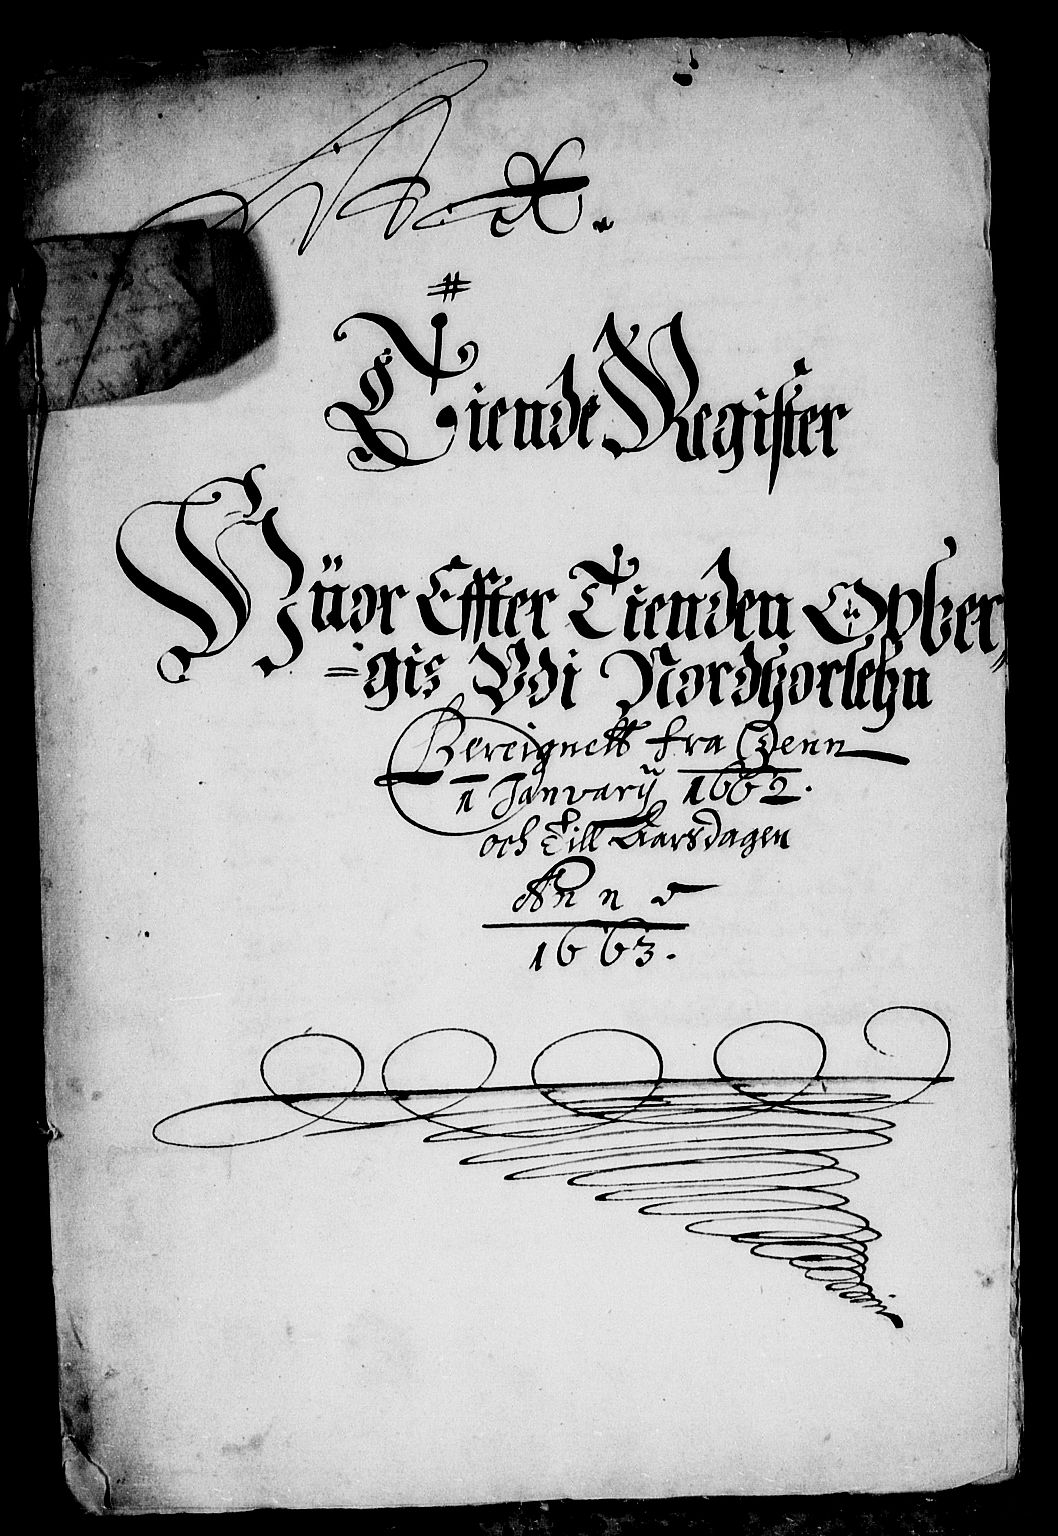 #
Tiende Register
Hüor Effter Tienden Opber,,
=gis Vdi Nordhorlehn
Bereignett fra Denn
1 Januarÿ 1662.
och Till Aarsdagen
Anno
1663.